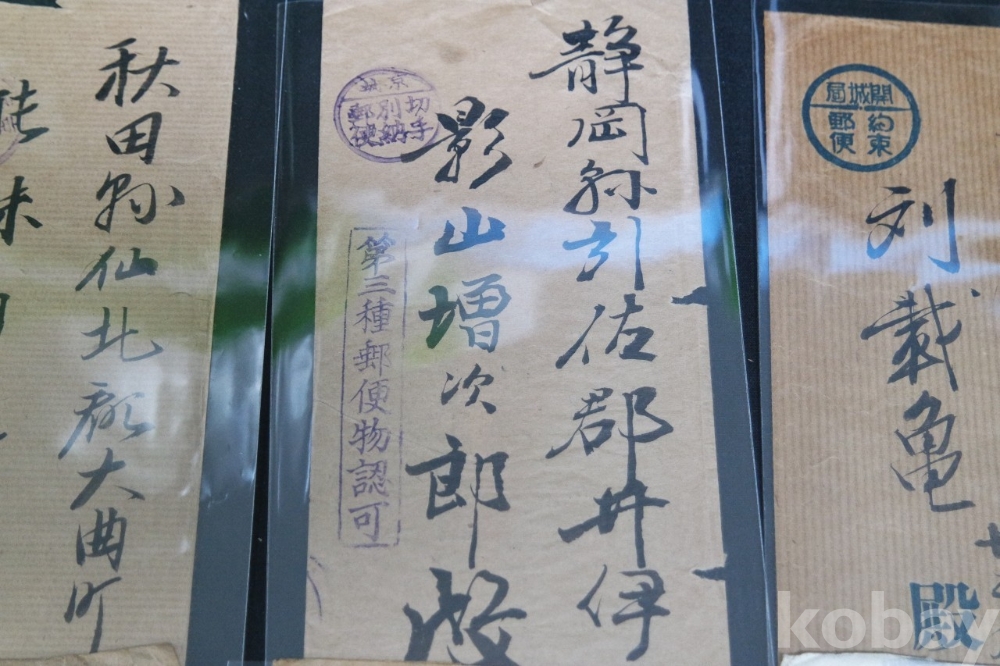 開城局
約束
郵便
刘載亀
殿
静岡縣引佐郡井伊
影山増次郎殿
東京
切手
別納
郵便
第三種郵便物認可
秋田縣仙北郡大曲町
kobsy